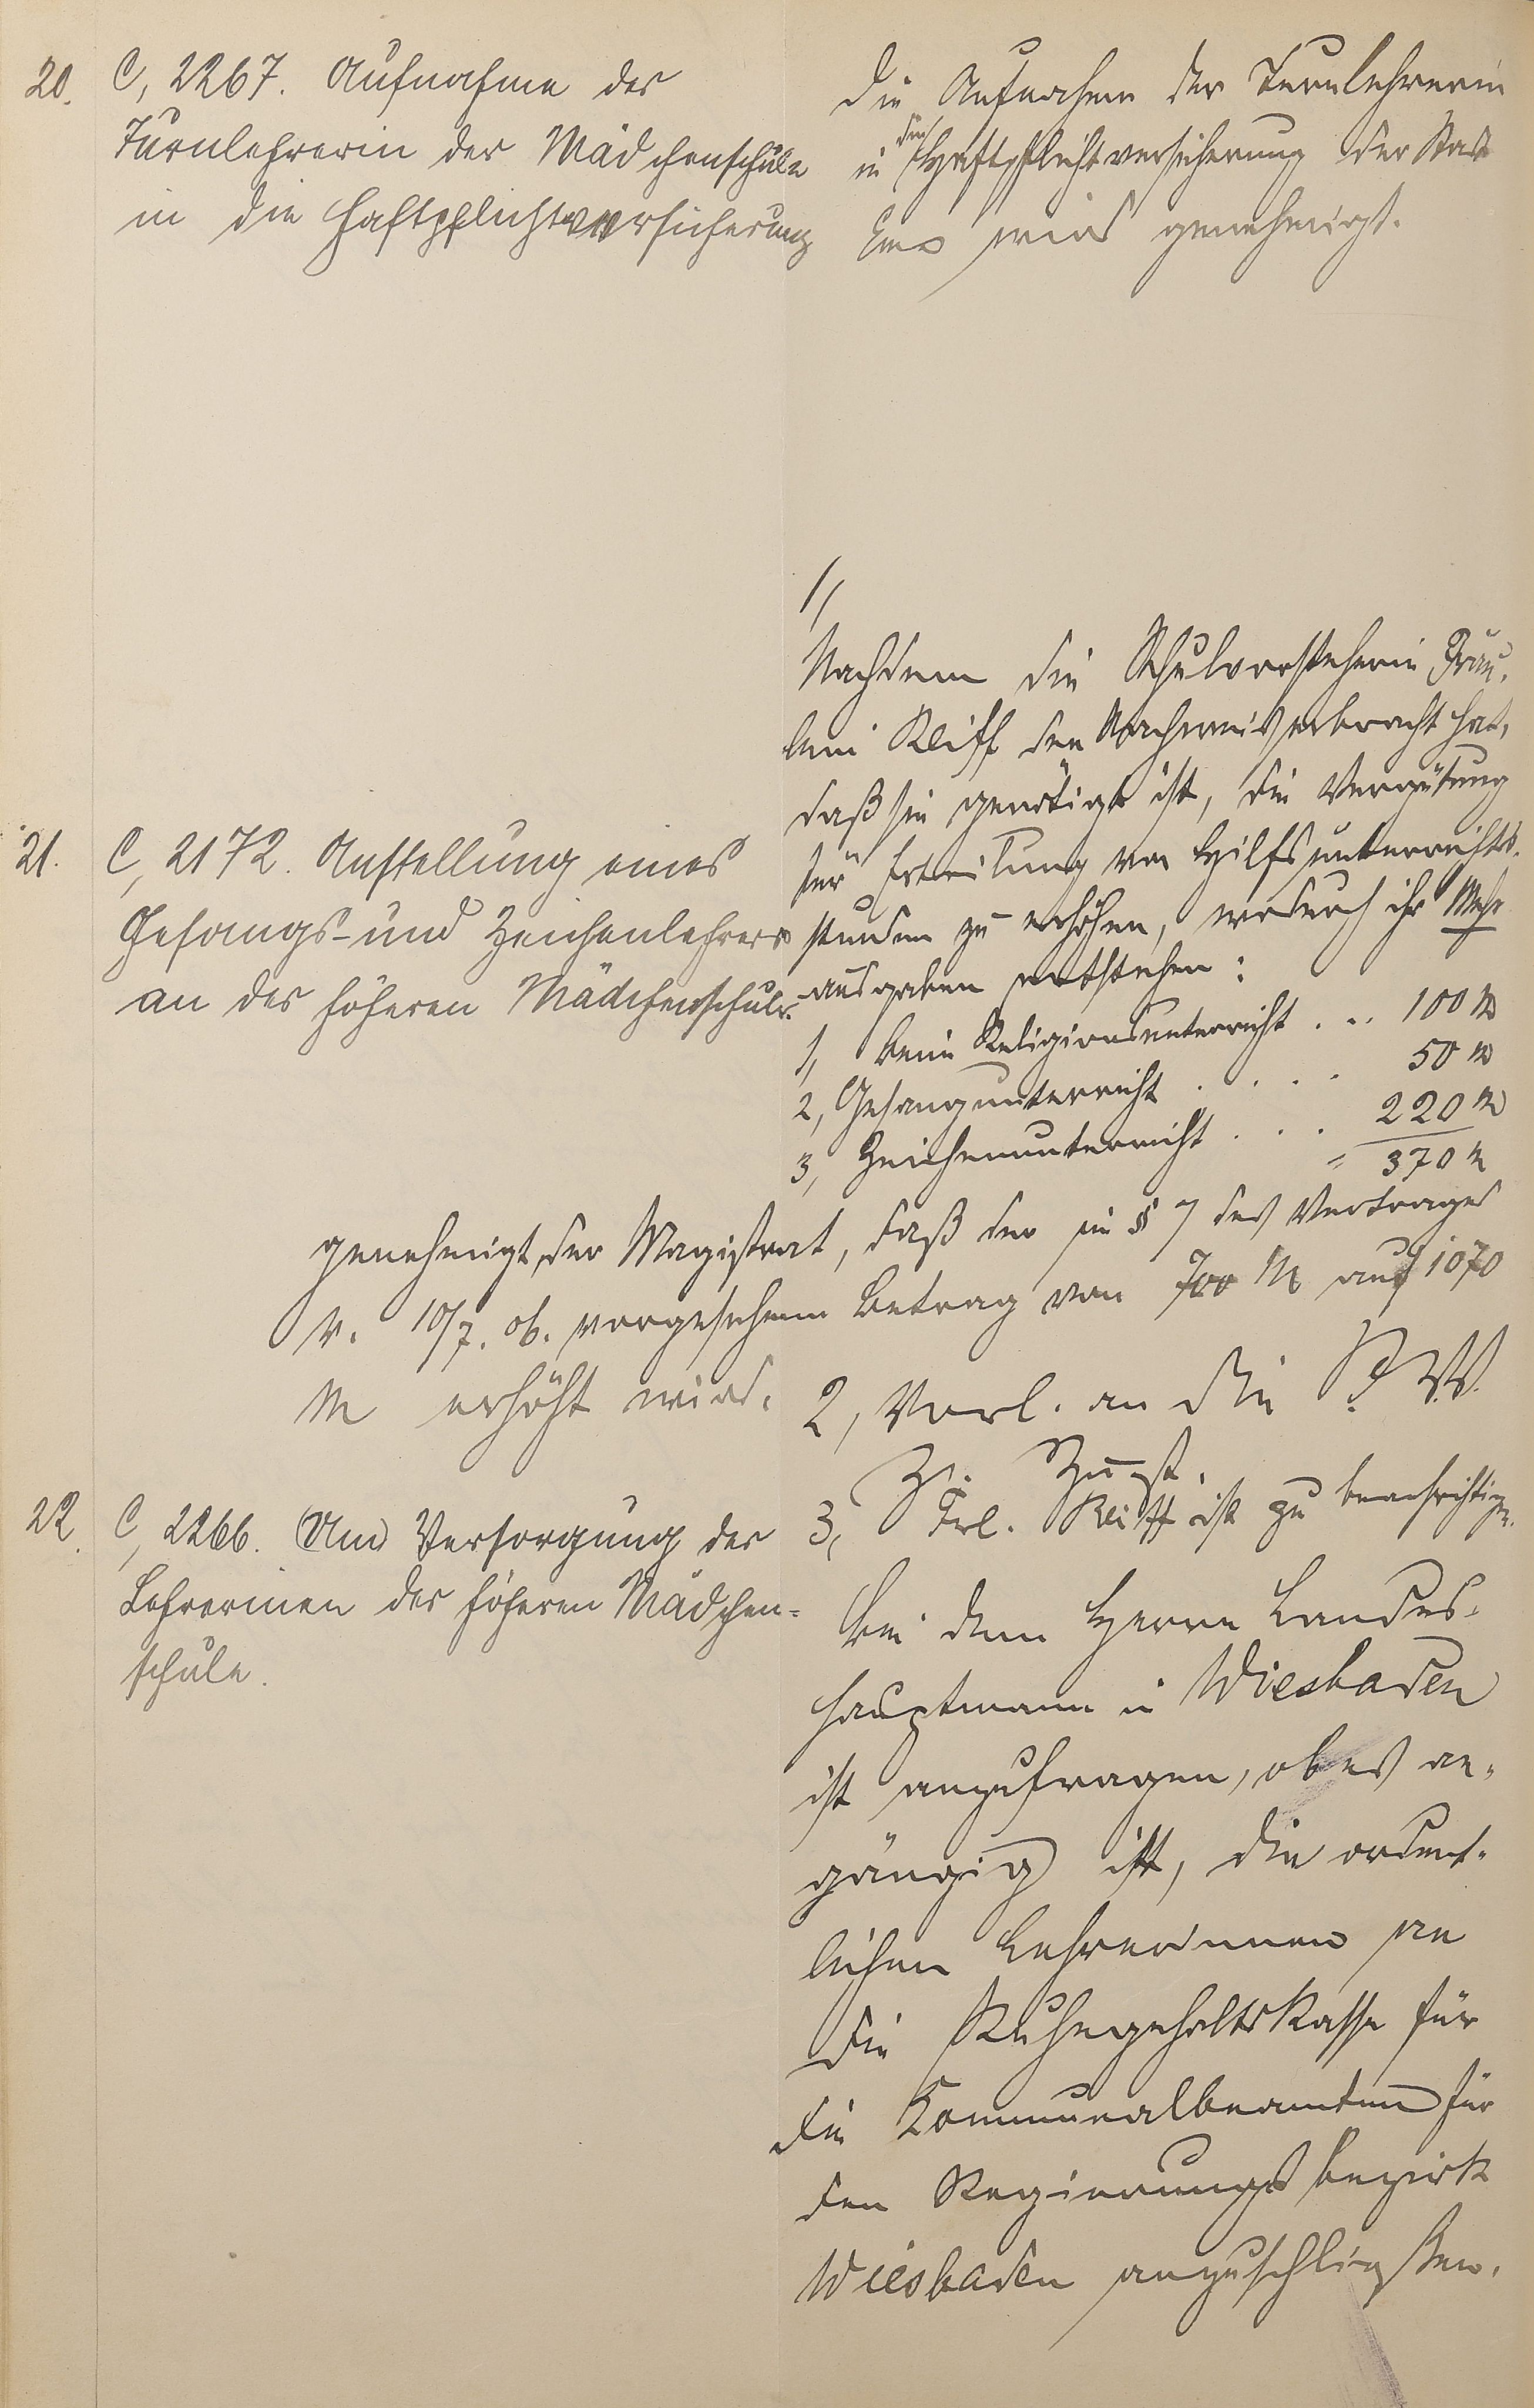 20. C, 2267. Aufnahme der
Turnlehrerin der Mädchenschule
in die Haftpflichtversicherung
Die Aufnahme der Turnlehrerin
in die Haftpflichtversicherung der Stadt
Ems wird genehmigt.
21. C, 2172. Anstellung eines
Gesangs- und Zeichenlehrers
an der höheren Mädchenschule.
1,
Nachdem die Schulvorsteherin Fräu-
lein Reiff den Nachweis erbracht hat,
daß sie genötigt ist, die Vergütung
für Erteilung von Hilfsunterrichts-
stunden zu erhöhen, wodurch ihr Mehr
ausgaben entstehen:
1, beim Religionsunterricht . .. 100 M
2, Gesangunterricht . . . . 50 M
3, Zeichenunterricht . . . 220 M
= 370 M
genehmigt der Magistrat, daß der in § 7 des Vertrages
v. 10/7. 06. vorgesehene Betrag von 700 M auf 1070
M erhöht wird.
2, Vorl. an die St. V. V.
z. Zust.
3, Frl. Reiff ist zu benachrichtigen.
22. C, 2266. Die Versorgung der
Lehrerinen der höheren Mädchen-
schule.
Bei dem Herrn Landes-
hauptmann in Wiesbaden
ist anzufragen, ob es an-
gängig ist, die ordent-
lichen Lehrerinnen an
die Ruhegehaltskasse für
die Kommunalbeamten für
den Regierungsbezirk
Wiesbaden anzuschließen.